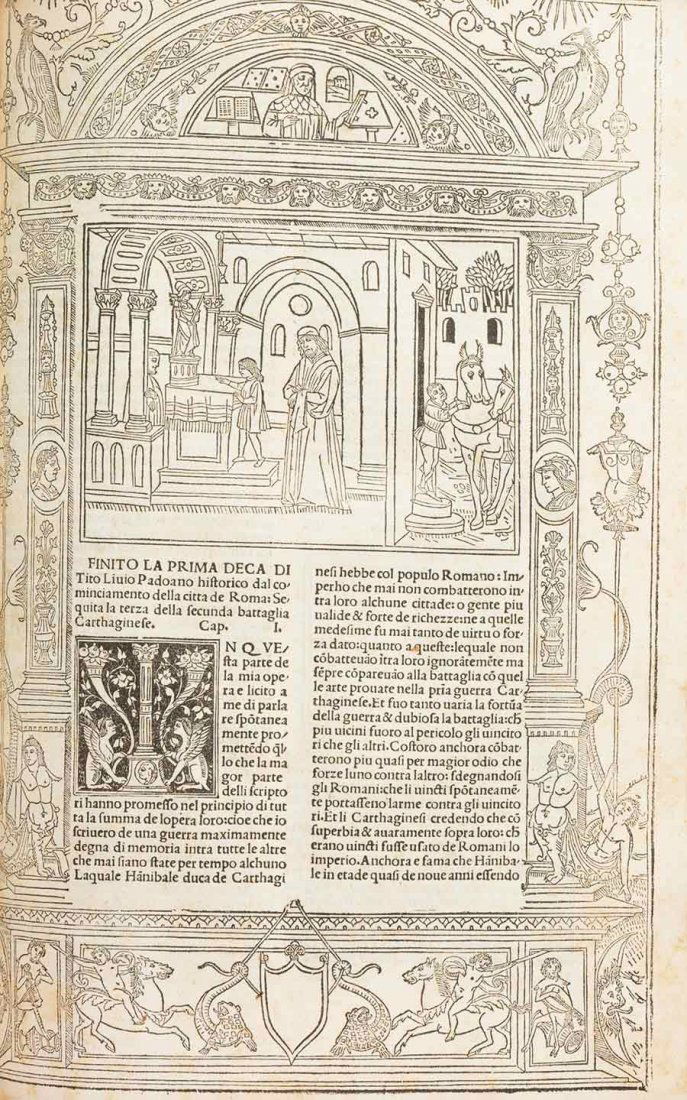 FINITO LA PRIMA DECA DI
Tito Liuio Padoano historico dal co-
minciamento della citta de Roma: Se-
quita la terza della secunda battaglia
Carthaginese. Cap. I.
N QVE-
sta parte de
la mia ope-
ra e licito a
me di parla
re spõtanea
mente pro-
mettẽdo q̃l
lo che la ma
gor parte
delli scripto
ri hanno promesso nel principio di tut
ta la summa de lopera loro: cioe che io
scriuero de una guerra maximamente
degna di memoria intra tutte le altre
che mai siano state per tempo alchuno
Laquale Hãnibale duca de Carthagi
nesi hebbe col populo Romano: Im-
perho che mai non combatterono in
tra loro alchune cittade: o gente piu
ualide & forte de richezze: ne a quelle
medesime fu mai tanto de uirtu o for
za dato: quanto a queste: lequale non
cõbatteuão ĩtra loro ignorãtemẽte ma
sẽpre cõpareuão alla battaglia cõ quel
le arte prouate nella prĩa guerra Car-
thaginese. Et fuo tanto uaria la fortũa
della guerra & dubiosa la battaglia: ch̃
piu uicini fuoro al pericolo gli uincito
ri che gli altri. Costoro anchora cõbat-
terono piu quasi per magior odio che
forze luno contra laltro: sdegnandosi
gli Romani: che li uincti spõtaneamẽ-
te portasseno larme contra gli uincito
ri. Et li Carthaginesi credendo che cõ
superbia & auaramente sopra loro: ch̃
erano uincti fusse usato de Romani lo
imperio. Anchora e fama che Hãniba-
le in etade quasi de noue anni essendo